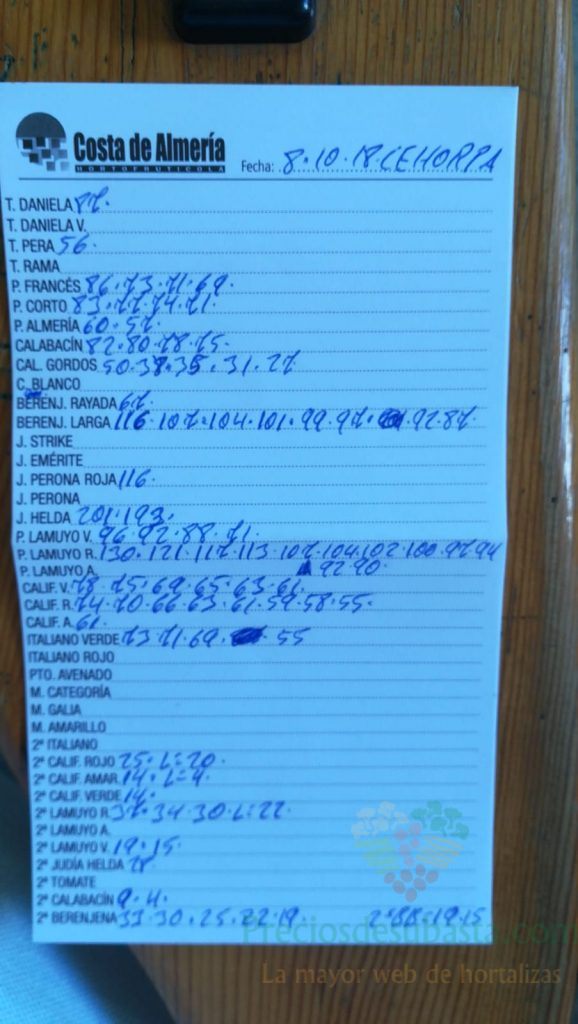 Costa de Almería
HORTOFRUTICOLA
Fecha: 8.10.18.CEHORPA
T. DANIELA 87.
T. DANIELA V.
T. PERA 56.
T. RAMA
P. FRANCÉS 86.73.71.69.
P. CORTO 83.77.74.71.
P. ALMERÍA 60.57.
CALABACÍN 82.80.78.75.
CAL. GORDOS 50.38.35.31.27
C. BLANCO
BERENJ. RAYADA 67.
BERENJ. LARGA 116.107.104.101.99.97. .92.87.
J. STRIKE
J. EMÉRITE
J. PERONA ROJA 116.
J. PERONA
J. HELDA 201.193.
P. LAMUYO V. 96.92.88.71.
P. LAMUYO R. 130.121.117.113.107.104.102.100.97.94
P. LAMUYO A. 92.90.
CALIF. V. 78.75.69.65.63.61.
CALIF. R. 74.70.66.63.61.59.58.55.
CALIF. A. 61.
ITALIANO VERDE 73.71.69. .55
ITALIANO ROJO
PTO. AVENADO
M. CATEGORÍA
M. GALIA
M. AMARILLO
2ª ITALIANO
2ª CALIF. ROJO 25.L=20.
2ª CALIF. AMAR. 14.L=4.
2ª CALIF. VERDE 14.
2ª LAMUYO R. 37.34.30.L=22.
2ª LAMUYO A.
2ª LAMUYO V. 19.15.
2ª JUDÍA HELDA 78
2ª TOMATE
2ª CALABACÍN 9.4.
2ª BERENJENA 33.30.25.22.19. 2ªBR=19.15
Preciosdesubasta.com
La mayor web de hortalizas